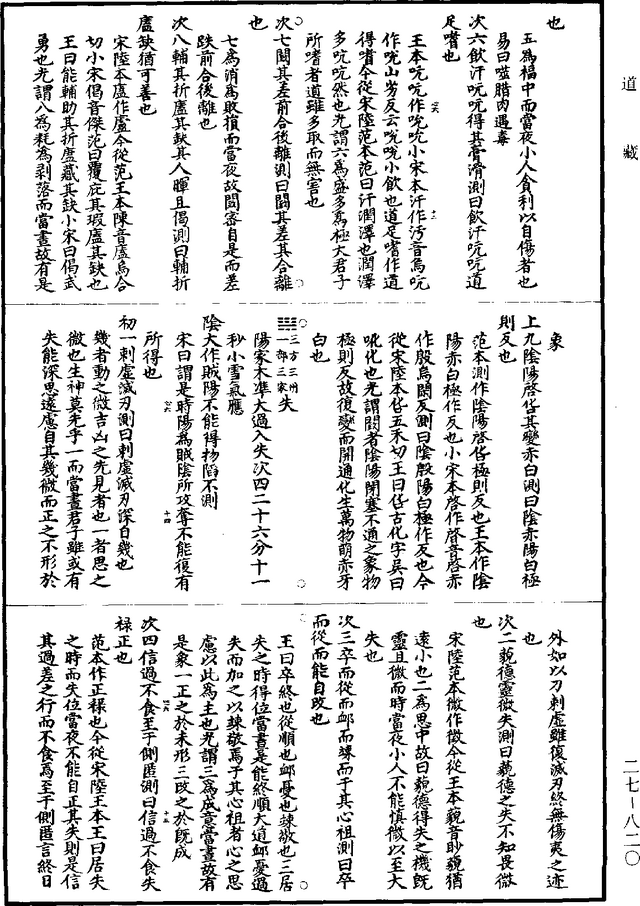 道藏
也
五為福中而當夜小人貪利以自傷者也
易曰噬腊肉遇毒
次六飲汗吭吭得其膏滑測曰飲汗吭吭道
足嗜也
王本吭吭作唲唲小宋本汗作汚音烏吭
得嗜今從宋陸范本范曰汗潤澤也潤澤
多吭吭然也光謂六為盛多為極大君子
所嗜者道雖多取而無害也
次七闔其差前合後離測曰闔其差其合離
也
七為消為敗損而當夜故闔密自是而差
跌前合後離也
次八輔其折廬其缺其人暉且偈測曰輔折
廬缺猶可善也
宋陸本廬作盧今從范王本陳音廬烏合
切小宋偈音傑范曰覆庇其瑕廬其缺也
王曰能輔助其折廬藏其缺小宋曰偈武
勇也光謂八為耗為剥落而當晝故有是
象
上九陰陽啓㕦其變赤白測曰陰赤陽白極
則反也
范本測作陰陽啓㕦極則反也王本作陰
陽赤白極作反也小宋本啓作䏿音啓赤
作殷烏閑反測曰陰殷陽白極作反也今
從宋陸本㕦五禾切王曰㕦古化字吳曰
吪化也光謂閡者陰陽閉塞不通之象物
極則反故復變而開通化生萬物萌赤牙
白也
三方三州
一部三家
失
陽家木準大過入失次四二十六分十一
秒小雪氣應
陰大作賊陽不能得物陷不測
宋曰謂是時陽為賊陰所攻奪不能復有
所得也
初一刺虛滅刃測曰刺虛滅刃深自幾也
幾者動之微吉凶之先見者也一者思之
微也生神莫先乎一而當晝君子雖或有
失能深思遠慮自其幾微而正之不形於
外如以刀刺虛雖復滅刃終無傷夷之迹
也
次二藐德靈微失測曰藐德之失不知畏微
也
宋陸范本微作徵今從王本藐音眇藐猶
遠小也二為思中故曰藐德得失之機既
靈且微而時當夜小人不能慎微以至大
失也
次三卒而從而䘏而竦而于其心祖測曰卒
而從而能自改也
王曰卒終也從順也䘏憂也竦敬也三居
失之時得位當晝是能終順大道䘏憂過
失而加之以竦敬焉于其心祖者心之思
慮以此為主也光謂三為成意當晝故有
是象一正之於未形三改之於既成
次四信過不食至于側匿測曰信過不食失
祿正也
范本作正祿也今從宋陸王本王曰居失
之時而失位當夜不能自正其失則是信
其過差之行而不食焉至于側匿言終日
二七–八二〇